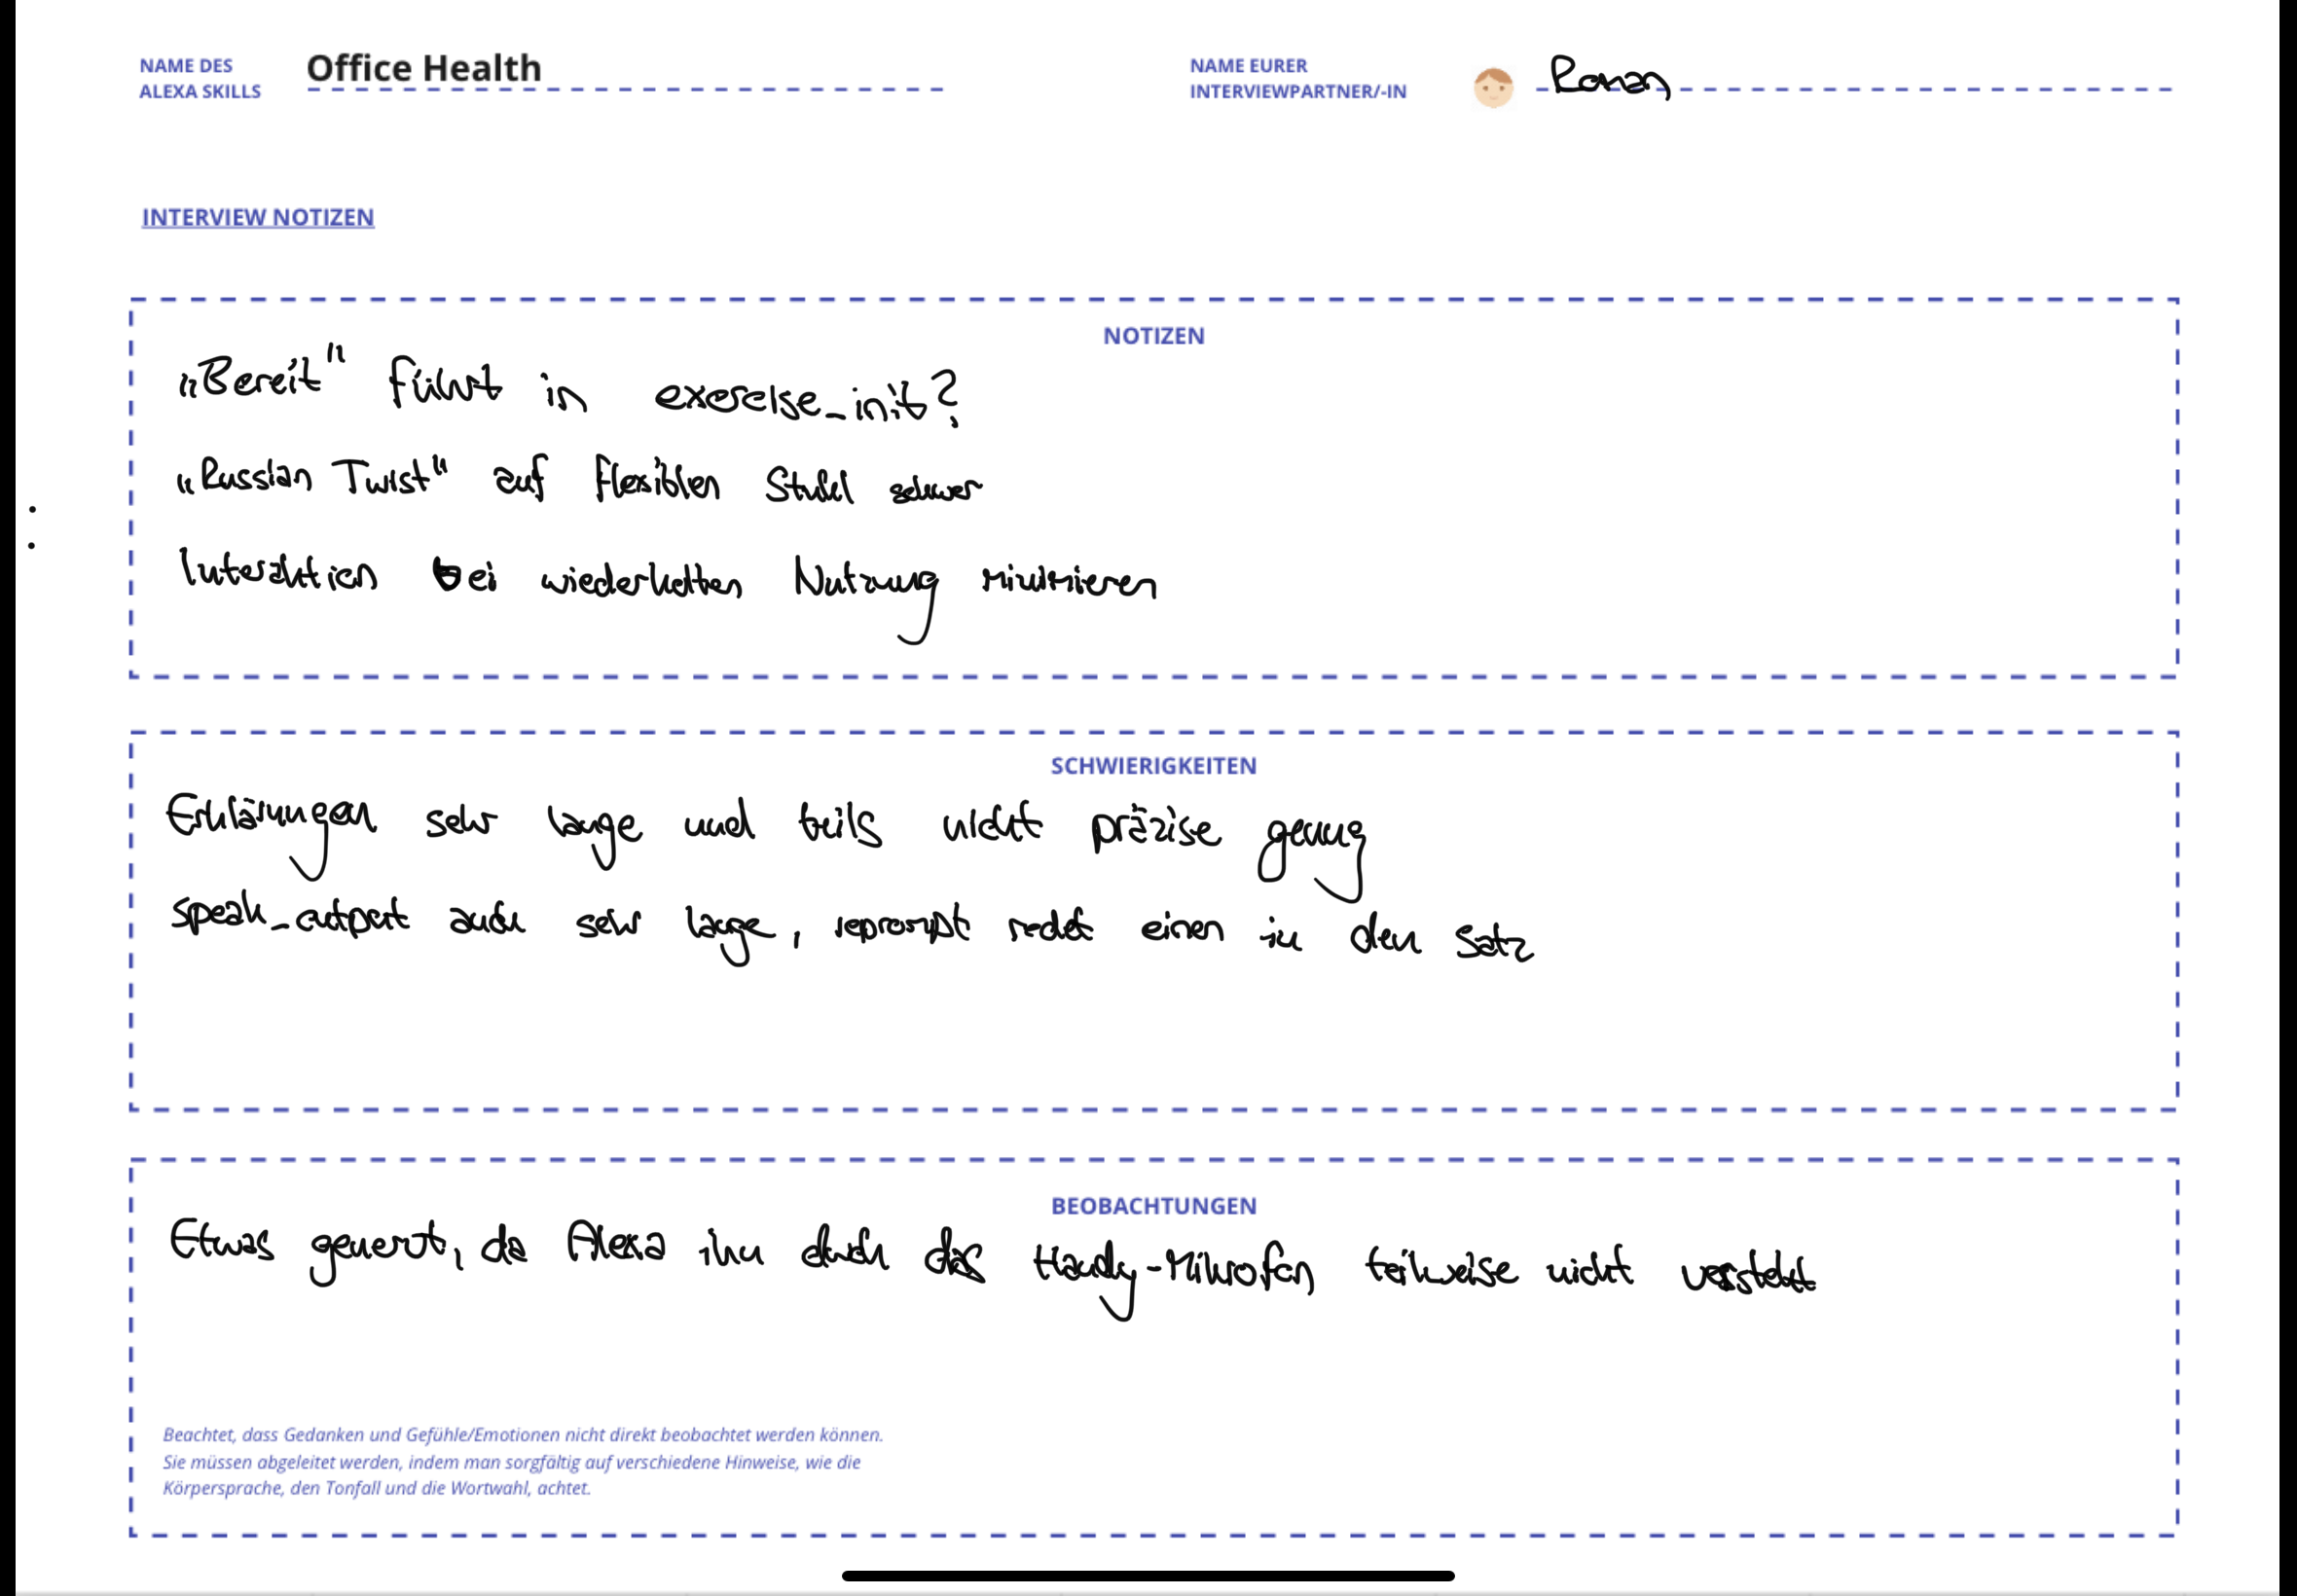 NAME DES
ALEXA SKILLS
Office Health
NAME EURER
INTERVIEWPARTNER/-IN
Roman
INTERVIEW NOTIZEN
NOTIZEN
„Bereit" führt in exercise_init?
„Russian Twist" auf flexiblen Stuhl schwer
Interaktion bei wiederholten Nutzung minimieren
SCHWIERIGKEITEN
Erklärungen sehr lange und teils nicht präzise genug
speak_output auch sehr lange, reprompt redet einen in den Satz
BEOBACHTUNGEN
Etwas genervt, da Alexa ihn durch das Handy-Mikrofon teilweise nicht versteht
Beachtet, dass Gedanken und Gefühle/Emotionen nicht direkt beobachtet werden können.
Sie müssen abgeleitet werden, indem man sorgfältig auf verschiedene Hinweise, wie die
Körpersprache, den Tonfall und die Wortwahl, achtet.